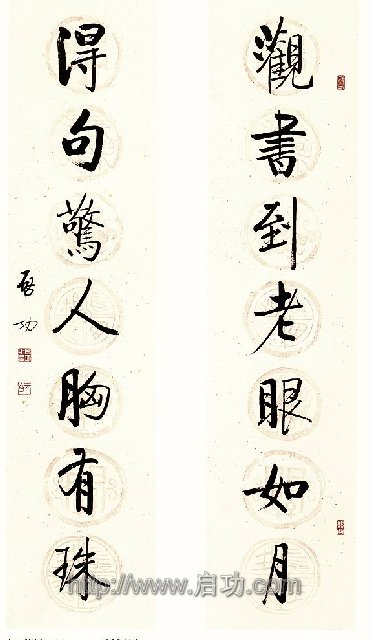 觀書到老眼如月
得句驚人胸有珠
啓功
http://www.启功.com